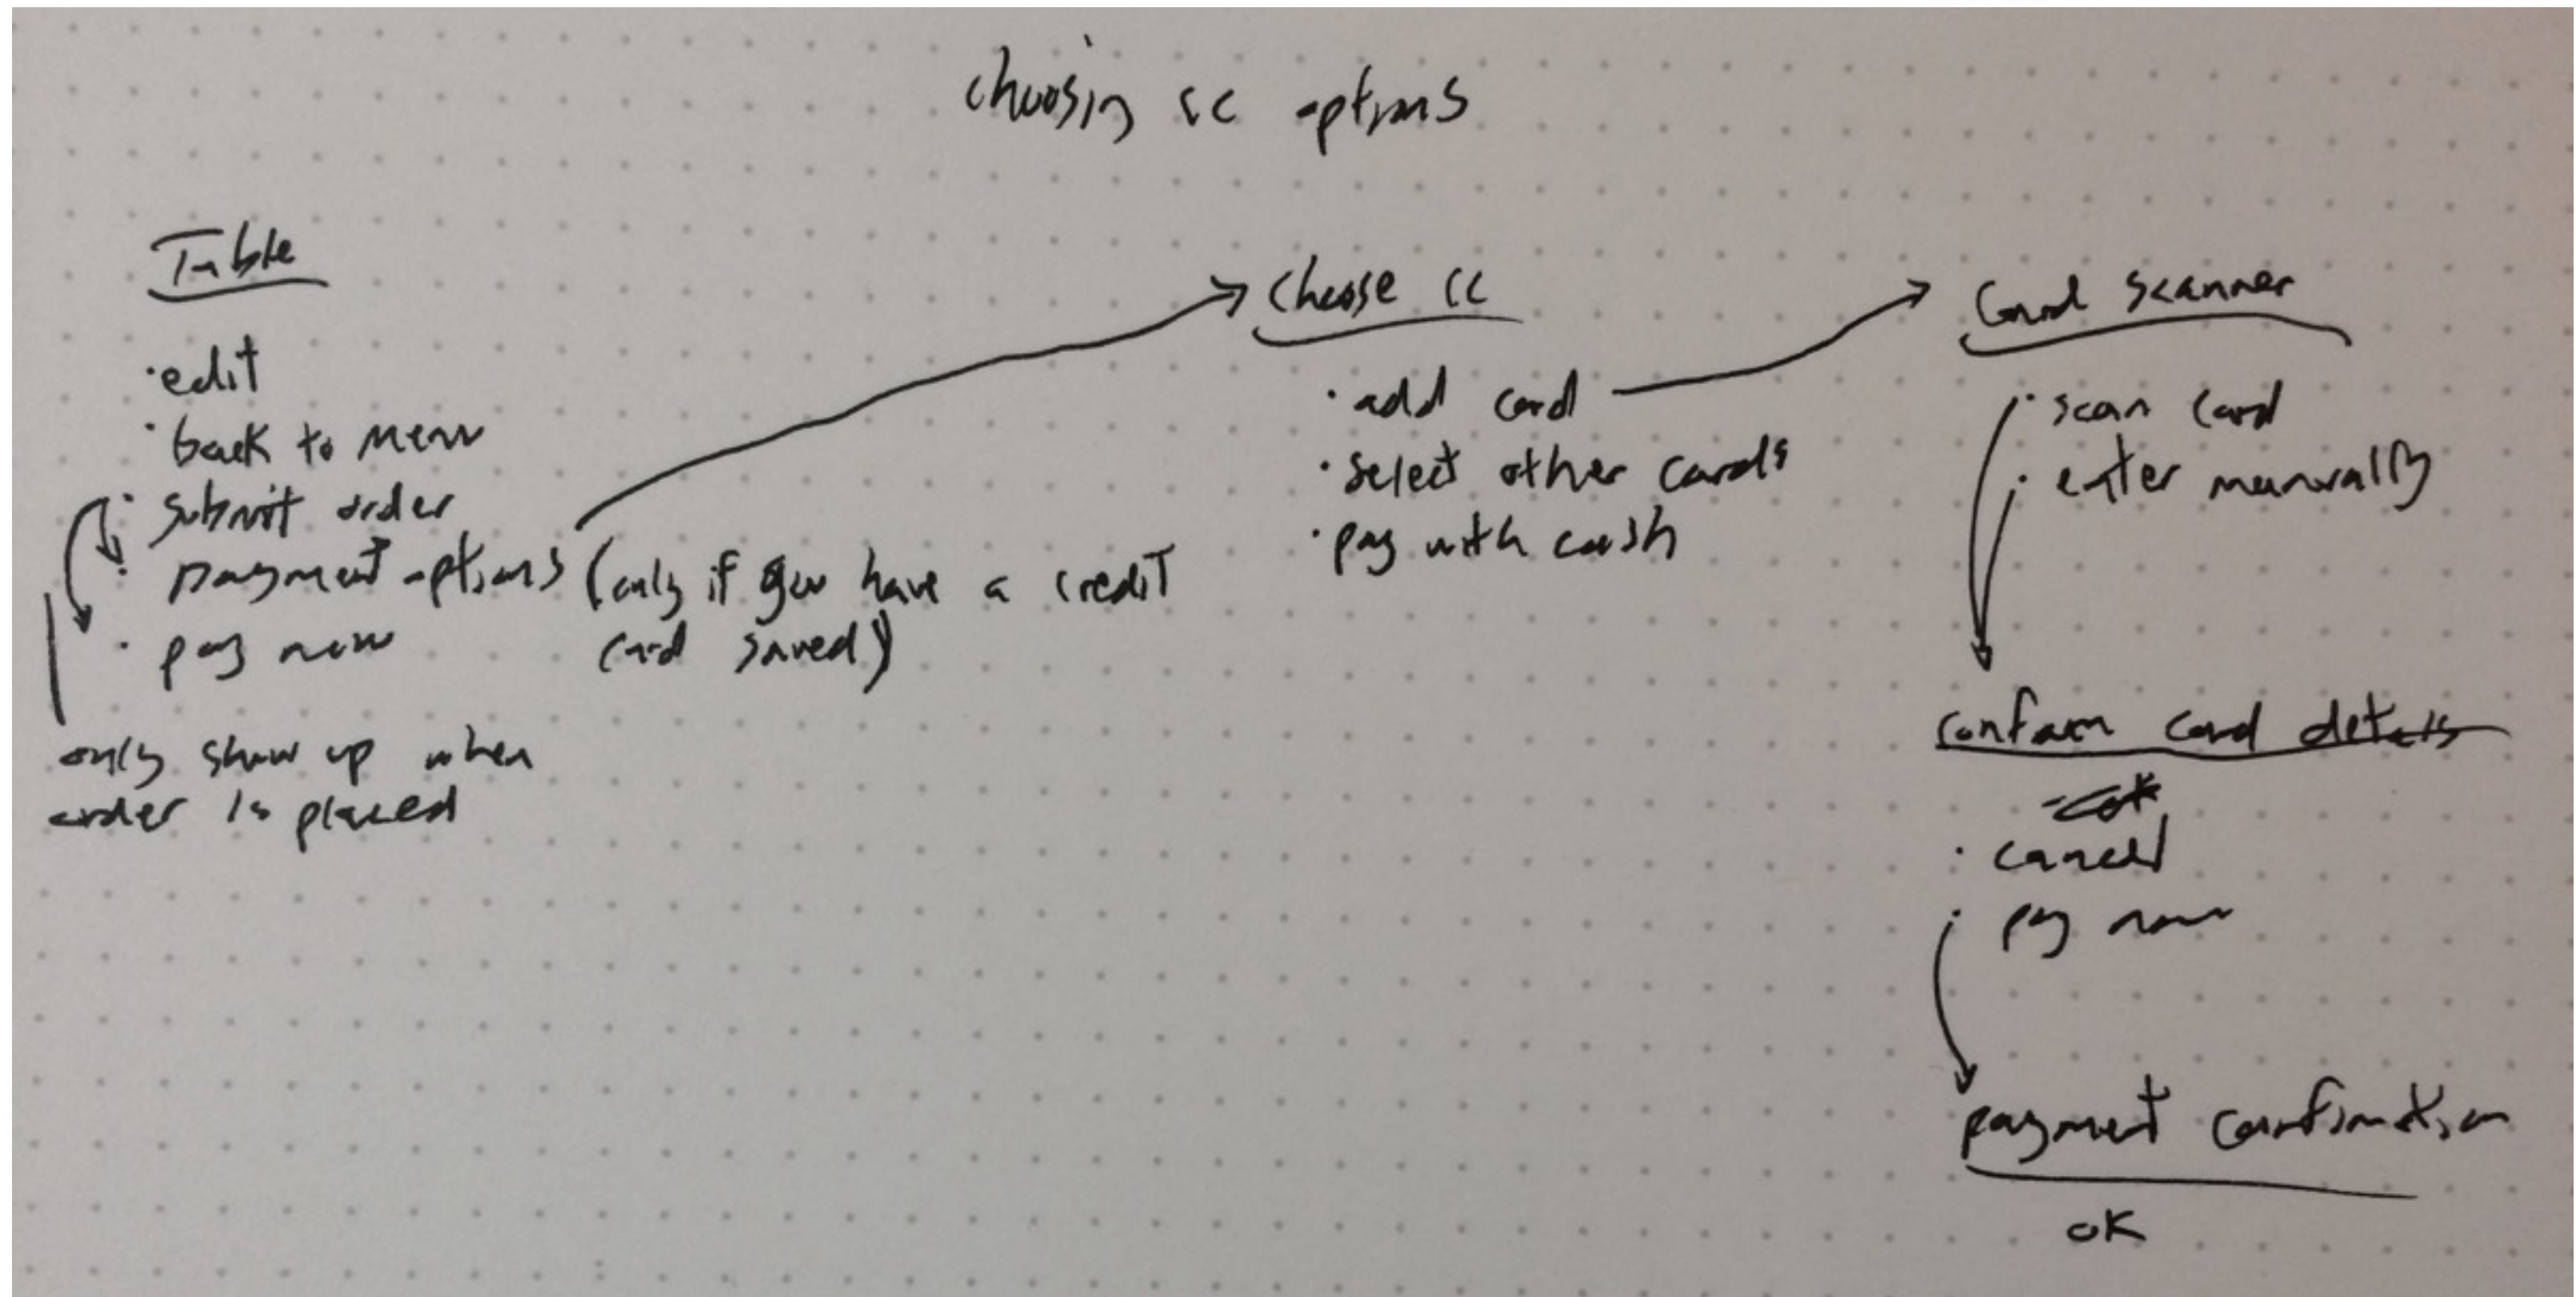 choosing cc options
Table
· edit
· back to menu
· submit order
· payment options (only if you have a credit
card saved)
· pay now
only show up when
order is placed
choose cc
· add card
· select other cards
· pay with cash
Card scanner
· scan card
· enter manually
confirm card details
· cancel
· pay now
payment confirmation
ok